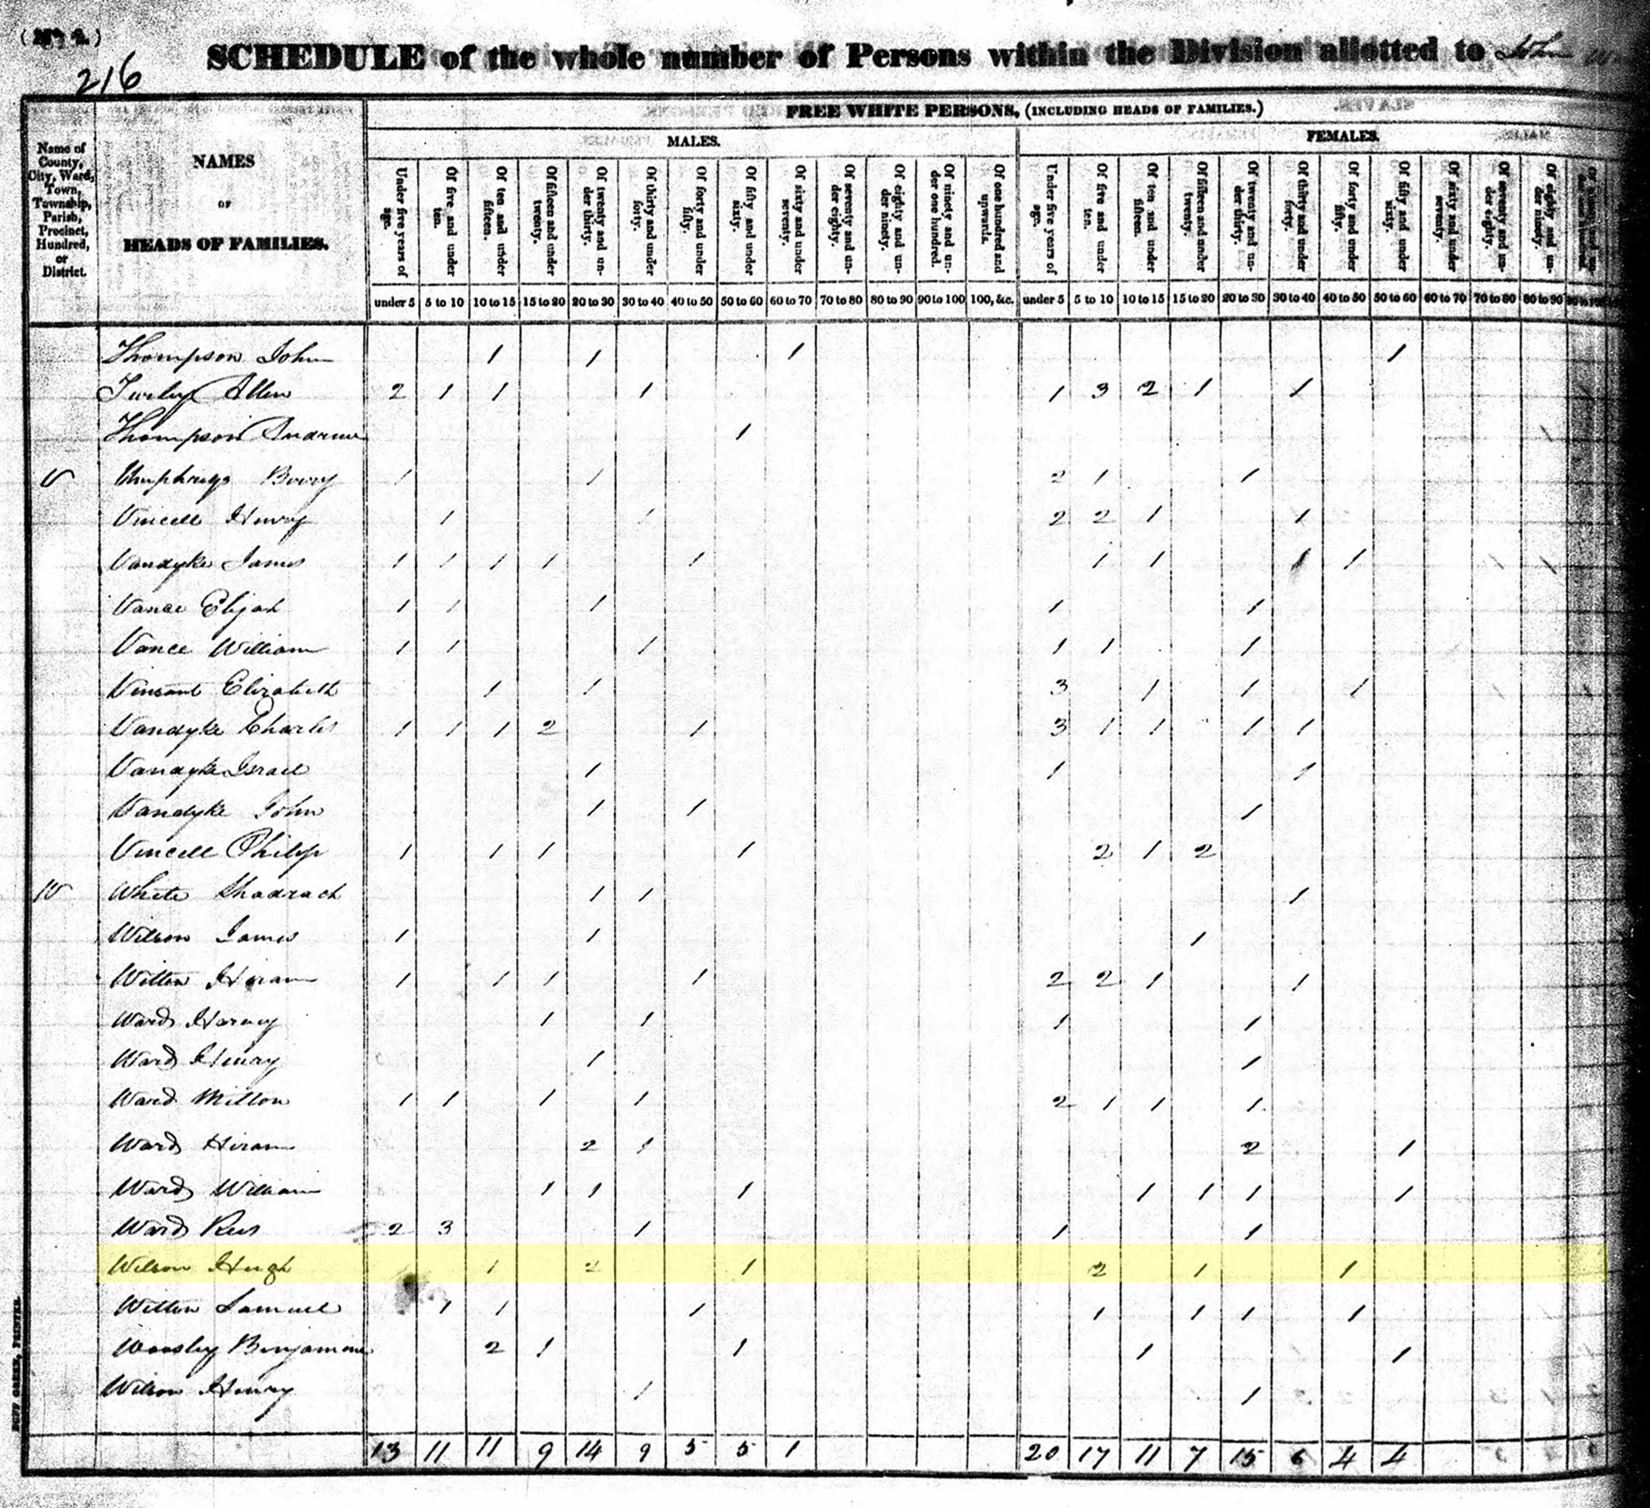 (No. 2.)
216
SCHEDULE of the whole number of Persons within the Division allotted to John
FREE WHITE PERSONS, (INCLUDING HEADS OF FAMILIES.)
MALES. FEMALES.
Name of County, City, Ward, Town, Township, Parish, Precinct, Hundred, or District.
NAMES
OF
HEADS OF FAMILIES.
Under five years of age. Of five and under ten. Of ten and under fifteen. Of fifteen and under twenty. Of twenty and under thirty. Of thirty and under forty. Of forty and under fifty. Of fifty and under sixty. Of sixty and under seventy. Of seventy and under eighty. Of eighty and under ninety. Of ninety and under one hundred. Of one hundred and upwards. Under five years of age. Of five and under ten. Of ten and under fifteen. Of fifteen and under twenty. Of twenty and under thirty. Of thirty and under forty. Of forty and under fifty. Of fifty and under sixty. Of sixty and under seventy. Of seventy and under eighty. Of eighty and under ninety.
under 5 5 to 10 10 to 15 15 to 20 20 to 30 30 to 40 40 to 50 50 to 60 60 to 70 70 to 80 80 to 90 90 to 100 100, &c. under 5 5 to 10 10 to 15 15 to 20 20 to 30 30 to 40 40 to 50 50 to 60 60 to 70 70 to 80 80 to 90
Thompson John 1 1 1 1
Allen 2 1 1 1 1 3 2 1 1
Thompson 1
U Umphreys Berry 1 1 2 1 1
Vincell Henry 1 1 2 2 1 1
Vandyke James 1 1 1 1 1 1 1 1 1
Vance Elijah 1 1 1 1 1
Vance William 1 1 1 1 1 1
Vinsant Elizabeth 1 1 3 1 1 1
Vandyke Charles 1 1 1 2 1 3 1 1 1 1
Vandyke Israel 1 1 1
Vandyke John 1 1 1
Vincell Philip 1 1 1 1 2 1 2
W White Shadrach 1 1 1
Wilson James 1 1 1
Witten Hiram 1 1 1 1 2 2 1 1
Ward Harvey 1 1 1 1
Ward Henry 1 1
Ward Milton 1 1 1 1 2 1 1 1
Ward Hiram 2 1 2 1
Ward William 1 1 1 1 1 1 1
Ward Rees 2 3 1 1 1
Wilson Hugh 1 2 1 2 1 1
Witten Samuel 1 1 1 1 1 1 1
Woosley Benjamine 2 1 1 1 1
Wilson Henry 1 1
13 11 11 9 14 9 5 5 1 20 17 11 7 15 6 4 4
DUFF GREEN, PRINTER.